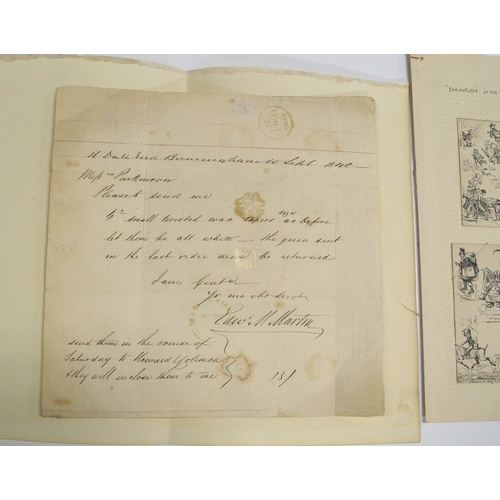 16 Dale End Birmingham 10 Sept 1840
Mess rs Parkinson
Please to send me
small twisted wax tapers as before
let them be all white — the green sent
in the last order must be returned
Yr mo obt Servt
Edwd M Martin
send them in the course of
Saturday to Howard Coleman
& they will inclose them to me